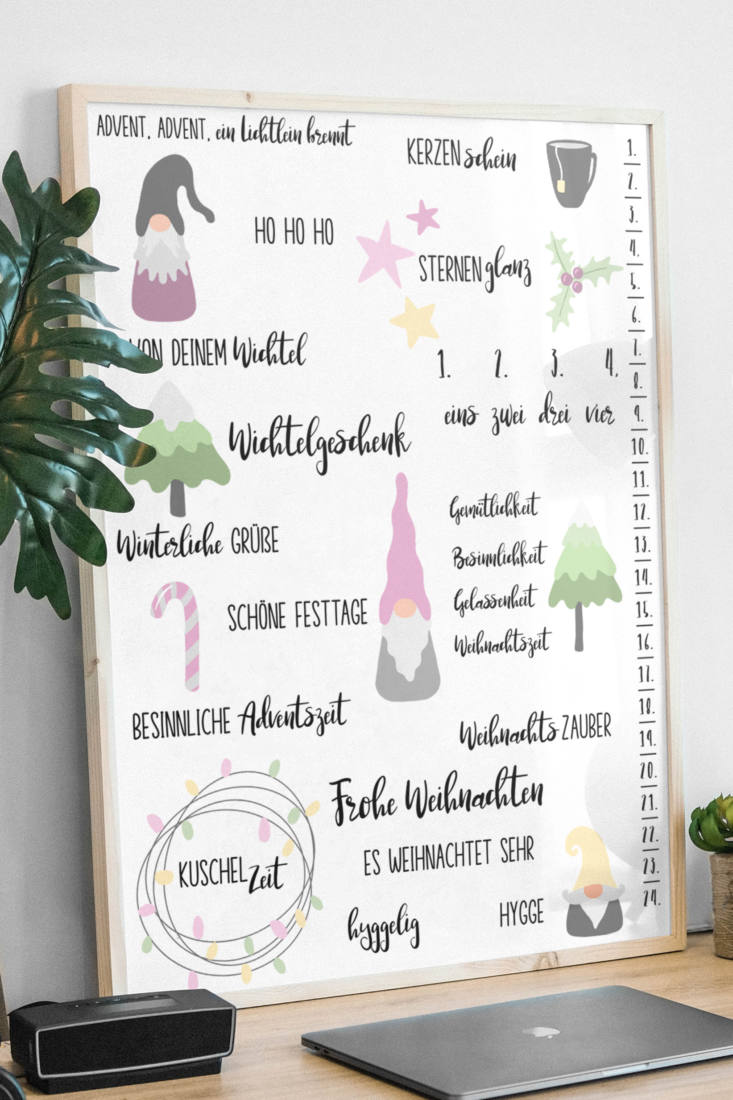 ADVENT, ADVENT, ein Lichtlein brennt
KERZENschein
HO HO HO
STERNENglanz
VON DEINEM Wichtel
1. 2. 3. 4.
eins zwei drei vier
Wichtelgeschenk
Winterliche GRÜßE
Gemütlichkeit
Besinnlichkeit
Gelassenheit
Weihnachtszeit
SCHÖNE FESTTAGE
BESINNLICHE Adventszeit
Weihnachts-ZAUBER
Frohe Weihnachten
ES WEIHNACHTET SEHR
KUSCHELZeit
hyggelig
HYGGE
1.
2.
3.
4.
5.
6.
7.
8.
9.
10.
11.
12.
13.
14.
15.
16.
17.
18.
19.
20.
21.
22.
23.
24.